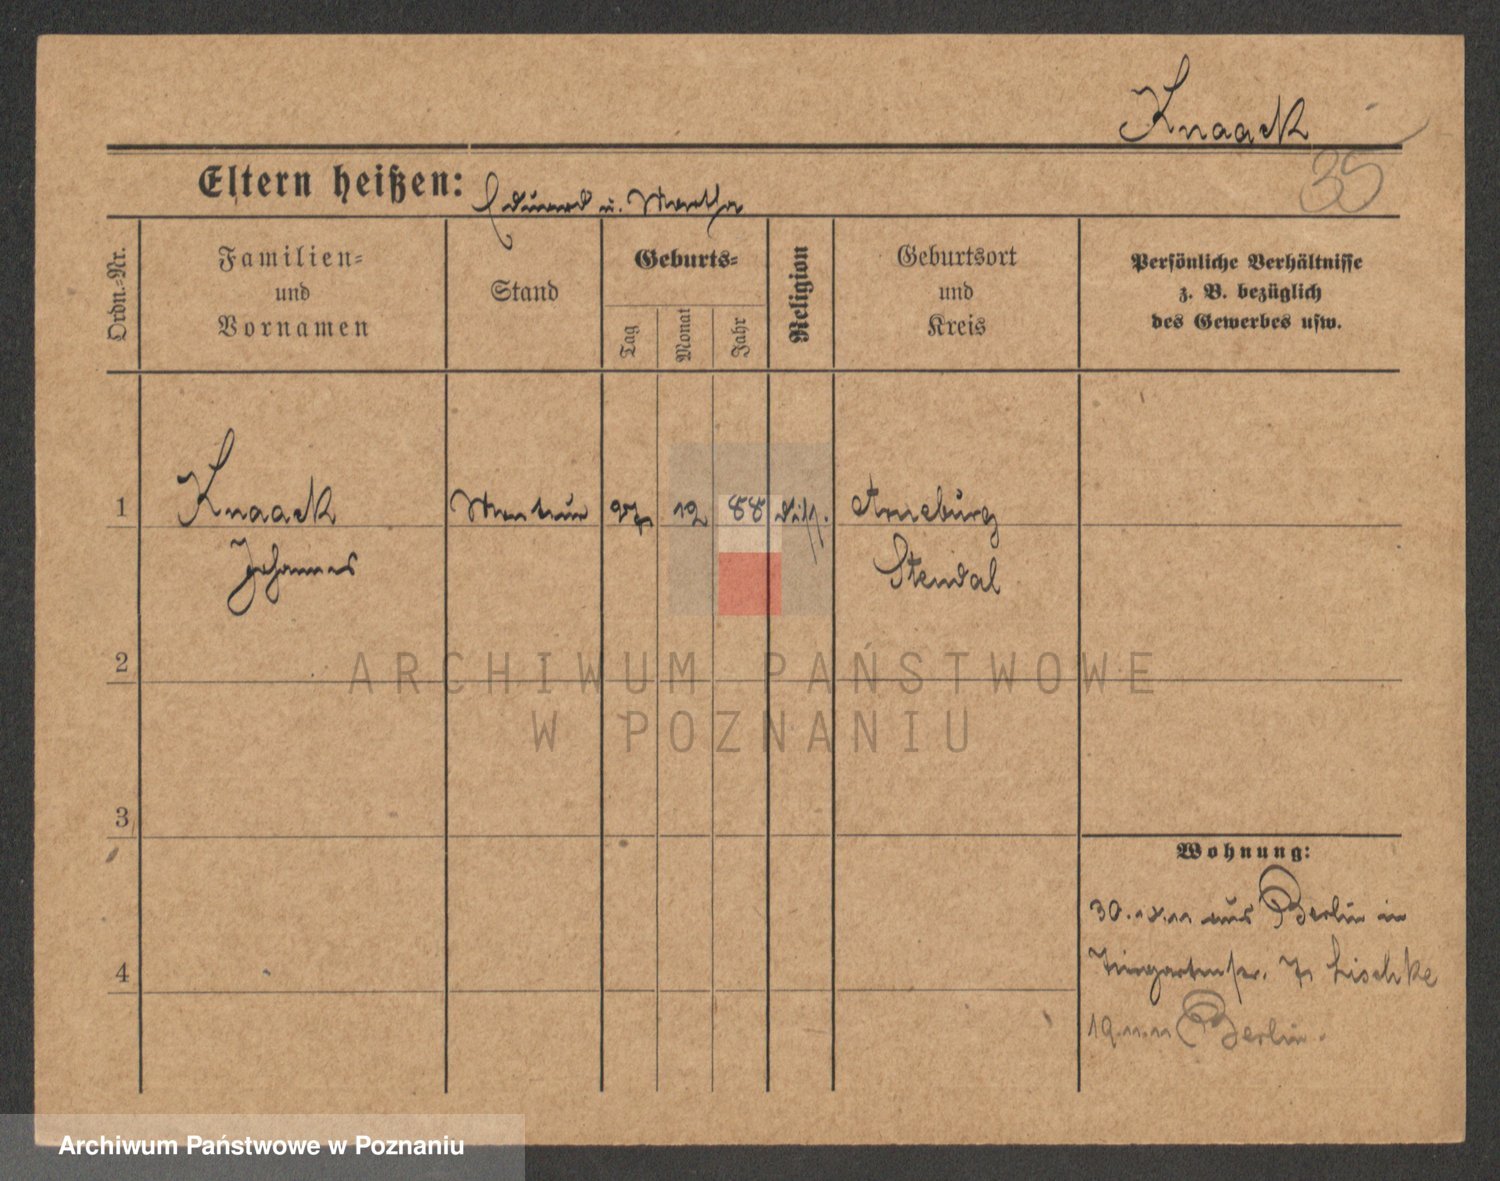 Knaack
35
Eltern heißen: Eduard u. Martha
Ordn.=Nr.
Familien=
und
Vornamen
Stand
Geburts=
Tag
Monat
Jahr
Religion
Geburtsort
und
Kreis
Persönliche Verhältnisse
z. B. bezüglich
des Gewerbes usw.
1
Knaack
Johannes
27
12
88
Arneburg
Stendal
2
ARCHIWUM PAŃSTWOWE
W POZNANIU
3
4
Wohnung:
30. aus Berlin in
Tiergartenstr. 7, Lischke
19.11.11 Berlin.
Archiwum Państwowe w Poznaniu